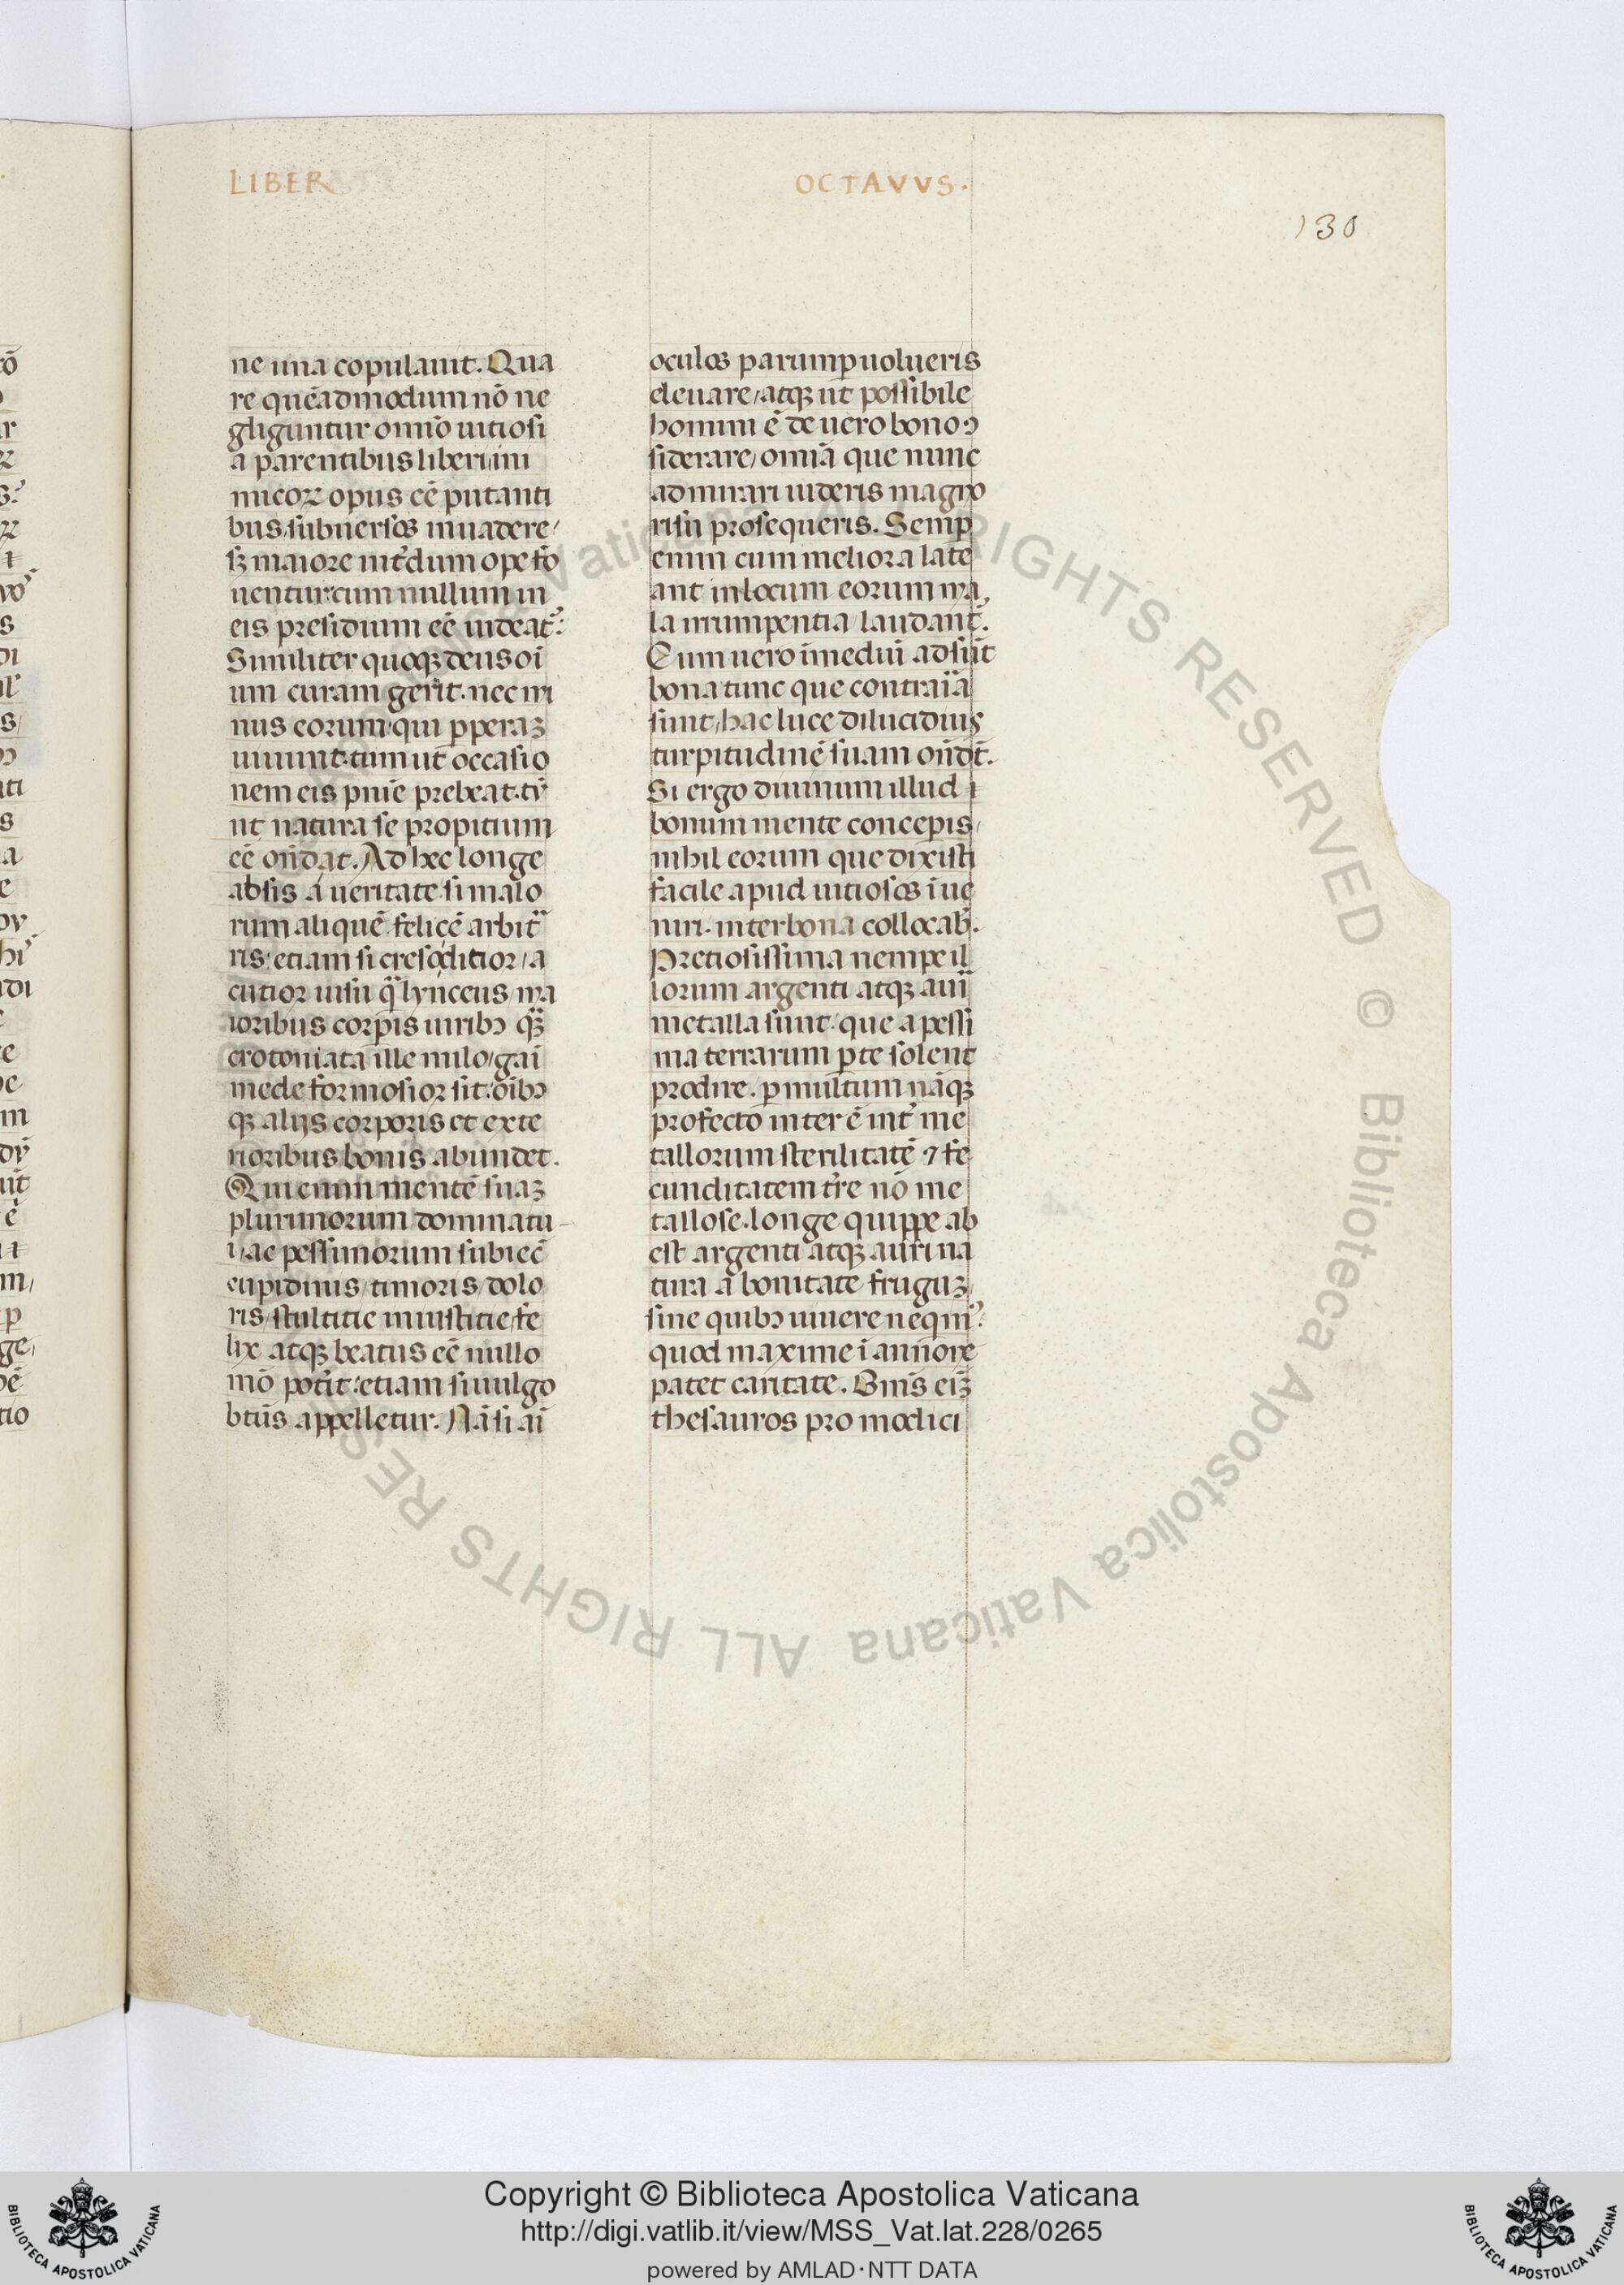 LIBER
OCTAVVS.
130
ne una copulauit. Qua
re quēadmodum nō ne
gliguntur omīo uitiosi
a parentibus liberi/ini
micoꝝ opus eē putanti
bus/subuersos inuadere/
sꝫ maiore int̓dum ope fo
uentur:cum nullum in
eis presidium eē uideat᷑:
Similiter quoqꝫ deus oī
um curam gerit. nec mi
nus eorum qui ꝑperaꝫ
uiuunt.tum ut occasio
nem eis pnīe prebeat.tū
ut natura se propitium
eē oñdat. Ad hec longe
absis a ueritate si malo
rum aliquē felicē arbit̃
ris:etiam si creso ditior/a
cutior uisu q̃ lynceus ma
ioribus corpis uiribꝯ q̃ꝫ
crotoniata ille milo/gai
mede formosior sit:oībꝯ
qꝫ alijs corporis et exte
rioribus bonis abundet.
Qui enim mentē suaꝫ
plurimorum dominatu
i/ac pessimorum subiec̄
cupidinis/timoris/dolo
ris/stultitie iniustitie/fe
lix atqꝫ beatus eē nullo
mō pot̓it:etiam si uulgo
btūs appelletur. Nā si aī
oculos parumꝑ uolueris
eleuare/atqꝫ ut possibile
homini ē de uero bono ꝯ
siderare/omīa que nunc
admirari uideris magno
risu prosequeris. Semꝑ
enim cum meliora late
ant in locum eorum ma,
la irrumpentia laudant᷑.
Cum uero ī mediū adsūt
bona tunc que contraria
sunt/hac luce dilucidius
turpitudinē suam oñdt̄.
Si ergo diuinum illud ⁊
bonum mente concepis/
nihil eorum que dixisti
facile apud uitiosos īue
niri. inter bona collocab̓.
Pretiosissima nempe il
lorum argenti atqꝫ auri
metalla sunt. que a pessi
ma terrarum ꝑte solent
prodire. ꝑmultum nāqꝫ
profecto inter ē int̓ me
tallorum sterilitatē ⁊ fe
cunditatem t̓re nō me
tallose.longe quippe ab
est argenti atqꝫ auri na
tura a bonitate frugūꝫ
sine quibꝯ uiuere nequim᷒:
quod maxime ī annone
patet caritate. Om̄s eīꝫ
thesauros pro modici
Copyright © Biblioteca Apostolica Vaticana
http://digi.vatlib.it/view/MSS_Vat.lat.228/0265
powered by AMLAD·NTT DATA
BIBLIOTECA APOSTOLICA VATICANA
BIBLIOTECA APOSTOLICA VATICANA
ALL RIGHTS RESERVED © Biblioteca Apostolica Vaticana